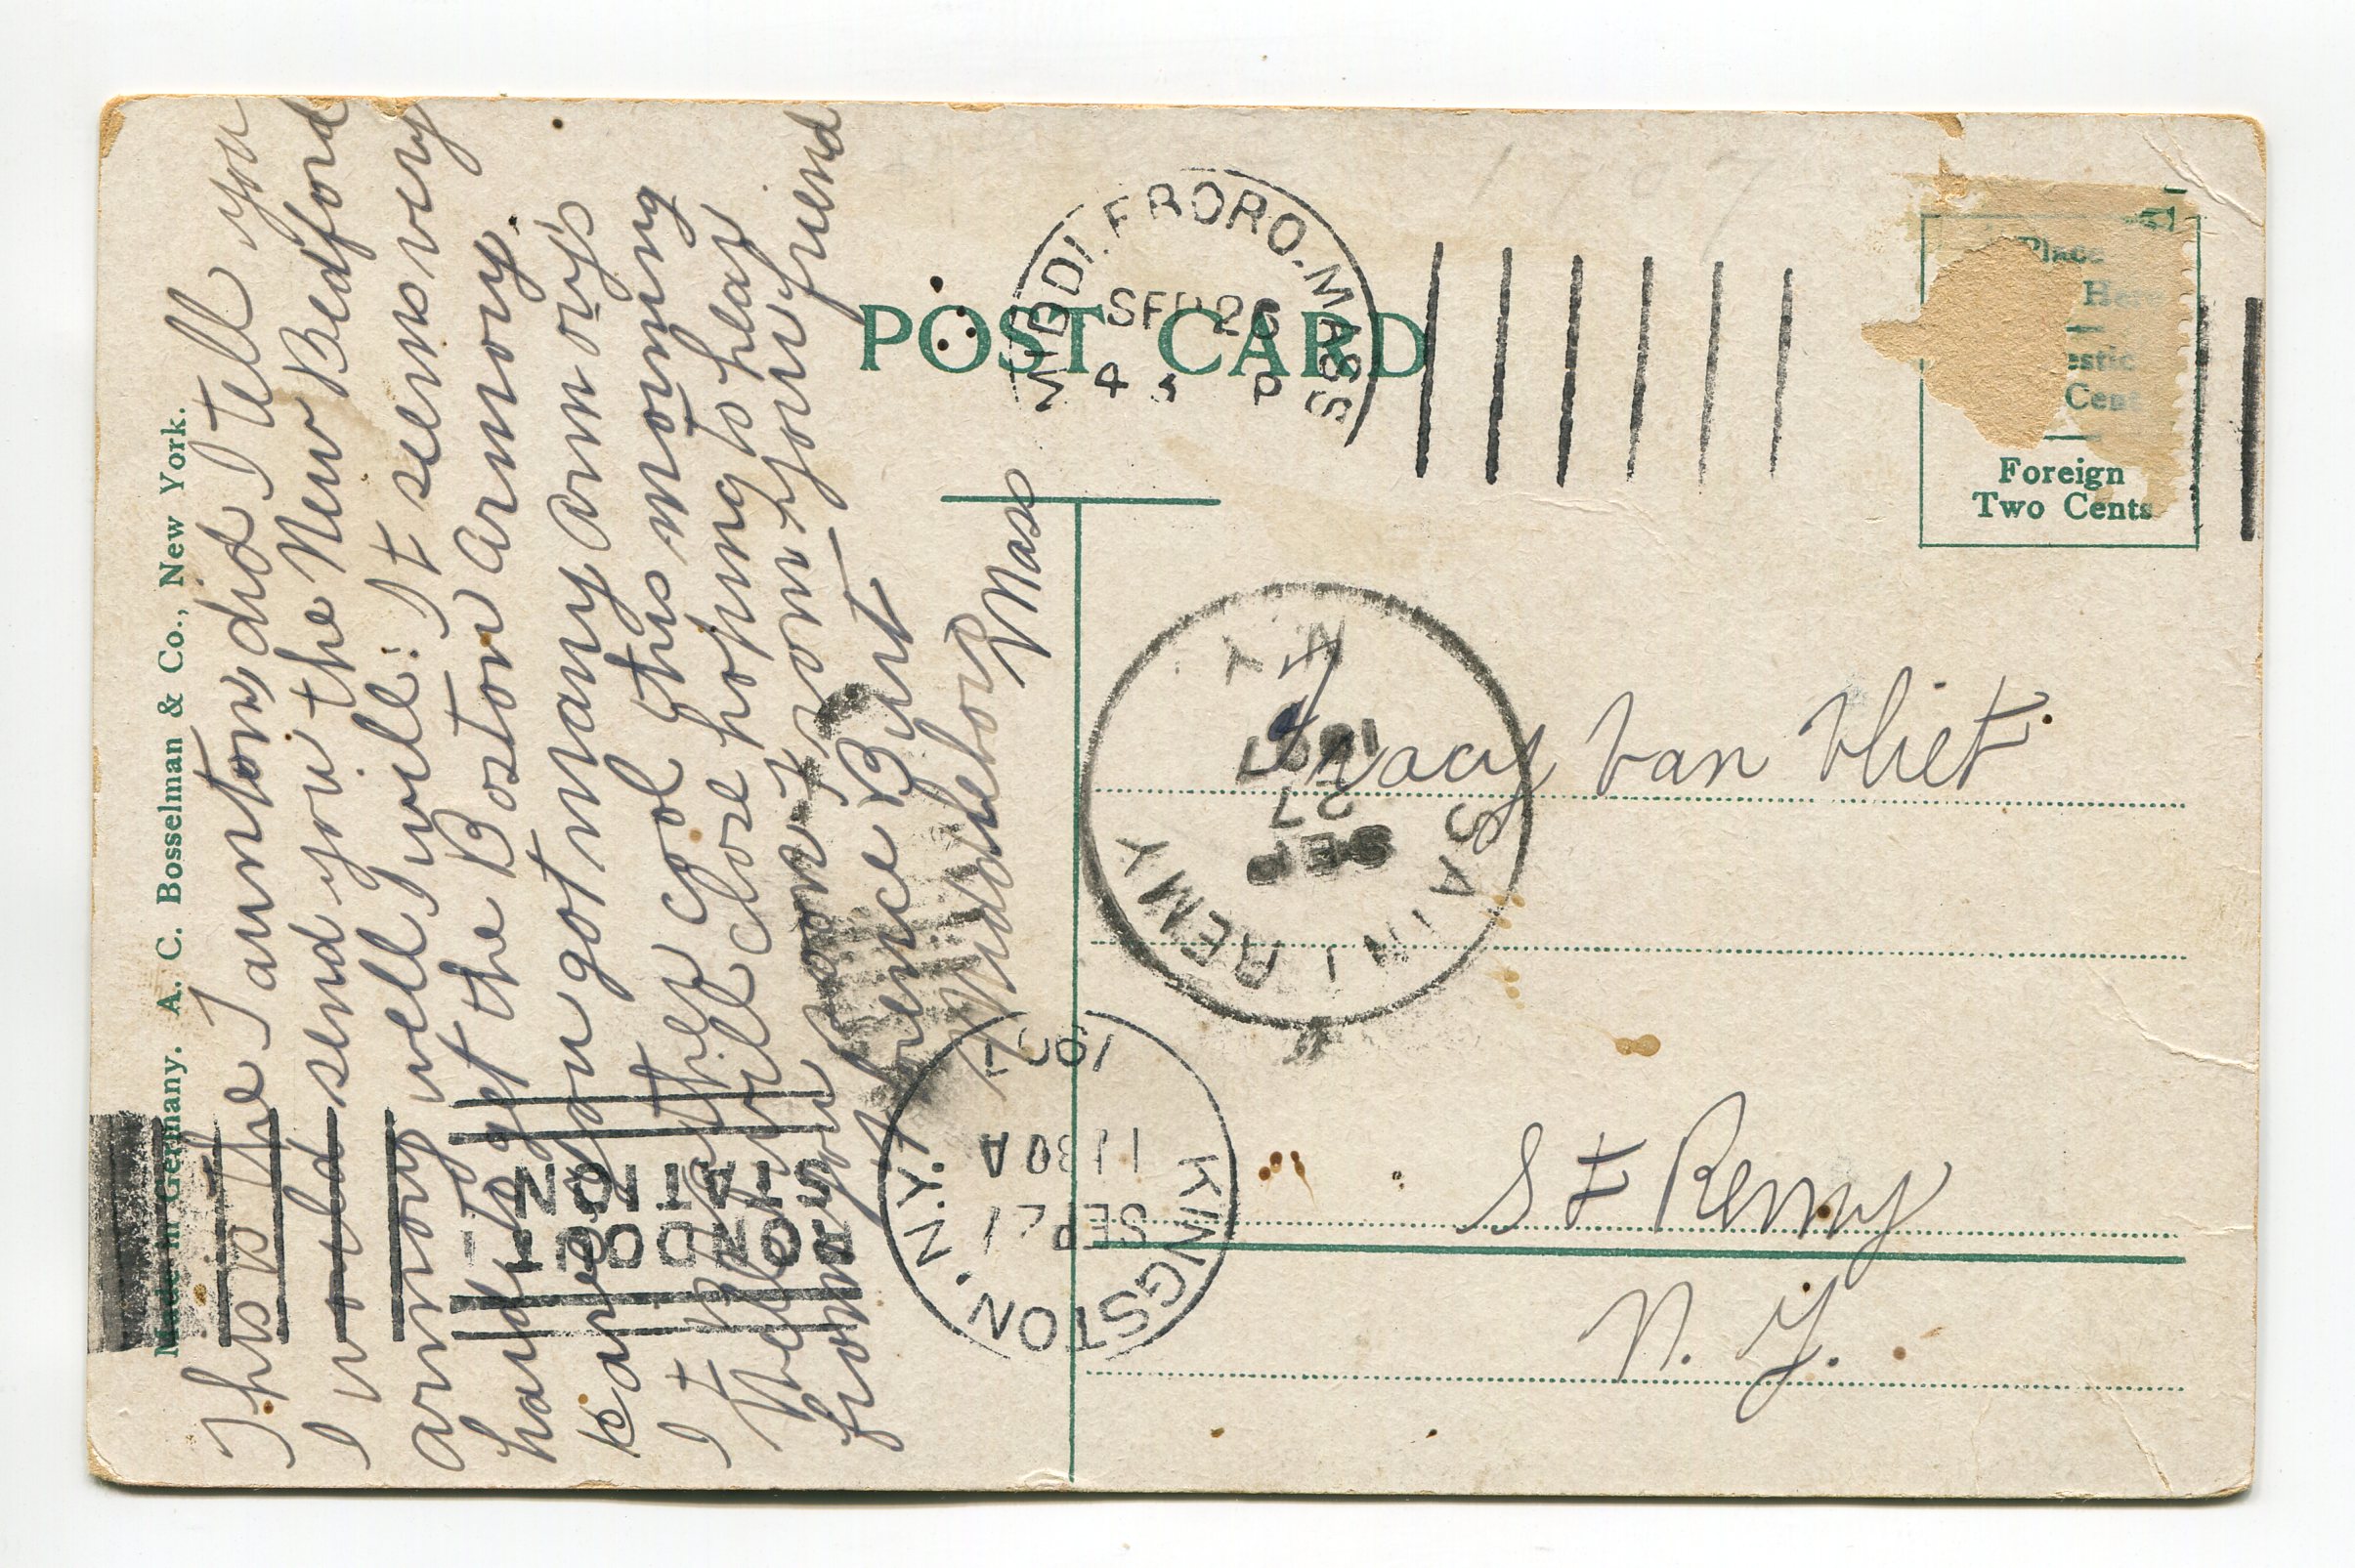 Made in Germany. A. C. Bosselman & Co., New York.
This is the Taunton did I tell you
I would send you the New Bedford
armory well I will: It seems very
hard to get the Boston Armory.
Have you got many Armory's
It is rather cool this morning
Well I will close hoping to hear
from you soon. From your friend
Florence Burt
Middleboro
Mass
POST CARD
MIDDLEBORO. MASS
SEP 26
4 P
Place
Here
estic
Cent
Foreign
Two Cents
SAINT REMY
SEP
27
1907
N.Y.
Tracy Van Vliet.
St Remy
N. Y.
KINGSTON, N.Y.
SEP 27
11 30 A
1907
RONDOUT
STATION